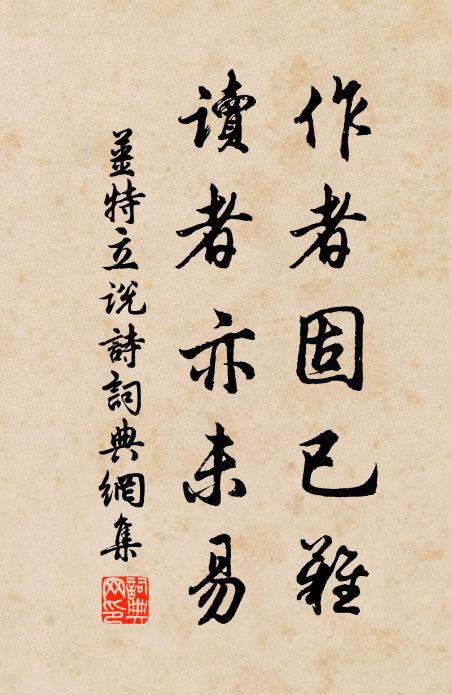 作者固已難
讀者亦未易
薑特立說詩詞典網集
詞典網印